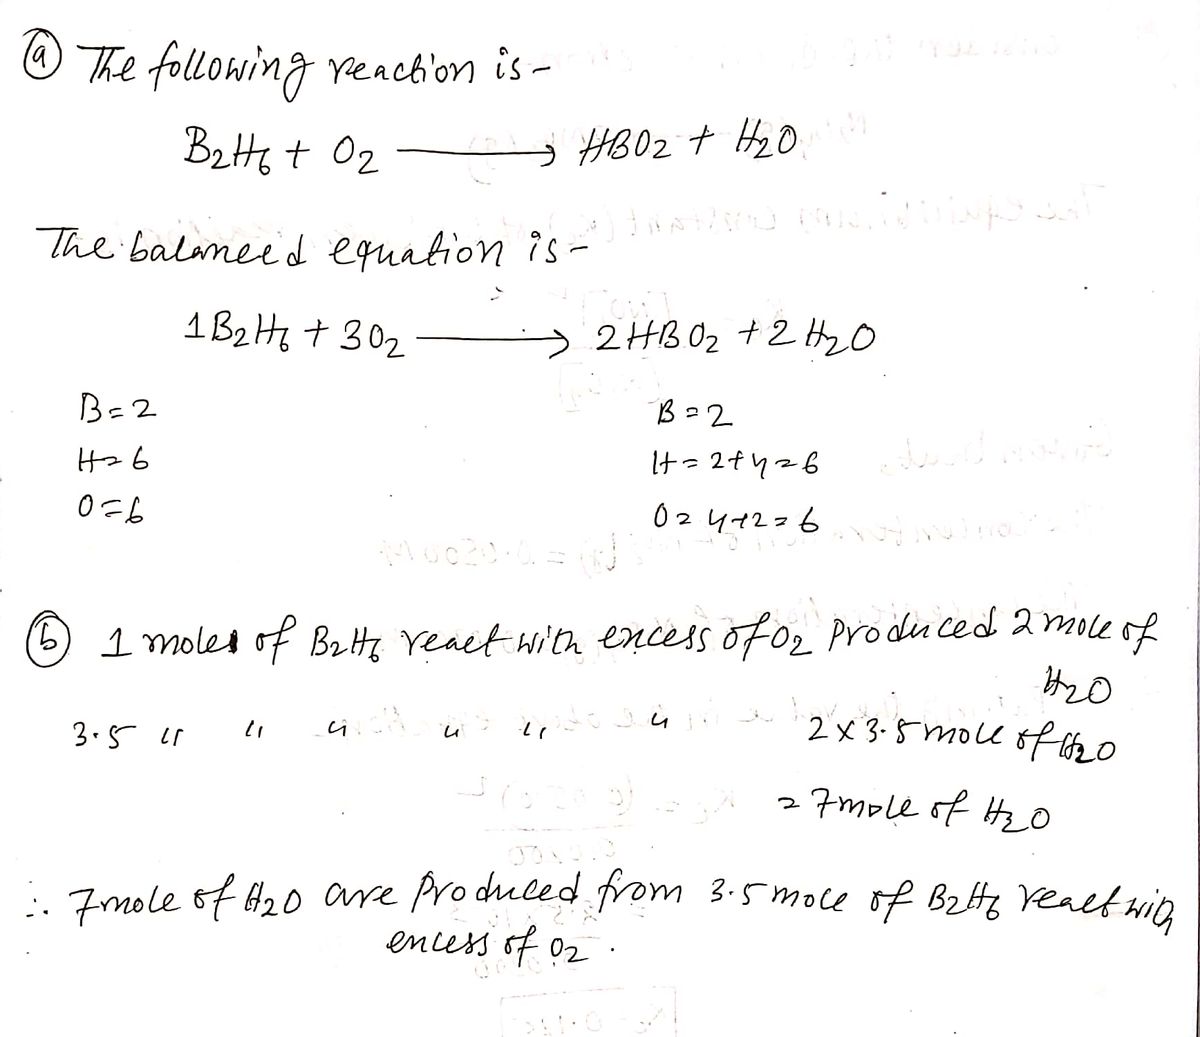 ⓐ The following reaction is -
B₂H₆ + O₂ ⟶ HBO₂ + H₂O
The balanced equation is -
1 B₂H₆ + 3 O₂ ⟶ 2 HBO₂ + 2 H₂O
B = 2 B = 2
H = 6 H = 2+4 = 6
O = 6 O = 4+2 = 6
ⓑ 1 moles of B₂H₆ react with excess of O₂ produced 2 mole of
H₂O
3.5 " " " " " " 2 × 3.5 mole of H₂O
= 7 mole of H₂O
∴ 7 mole of H₂O are produced from 3.5 mole of B₂H₆ react with
excess of O₂ .